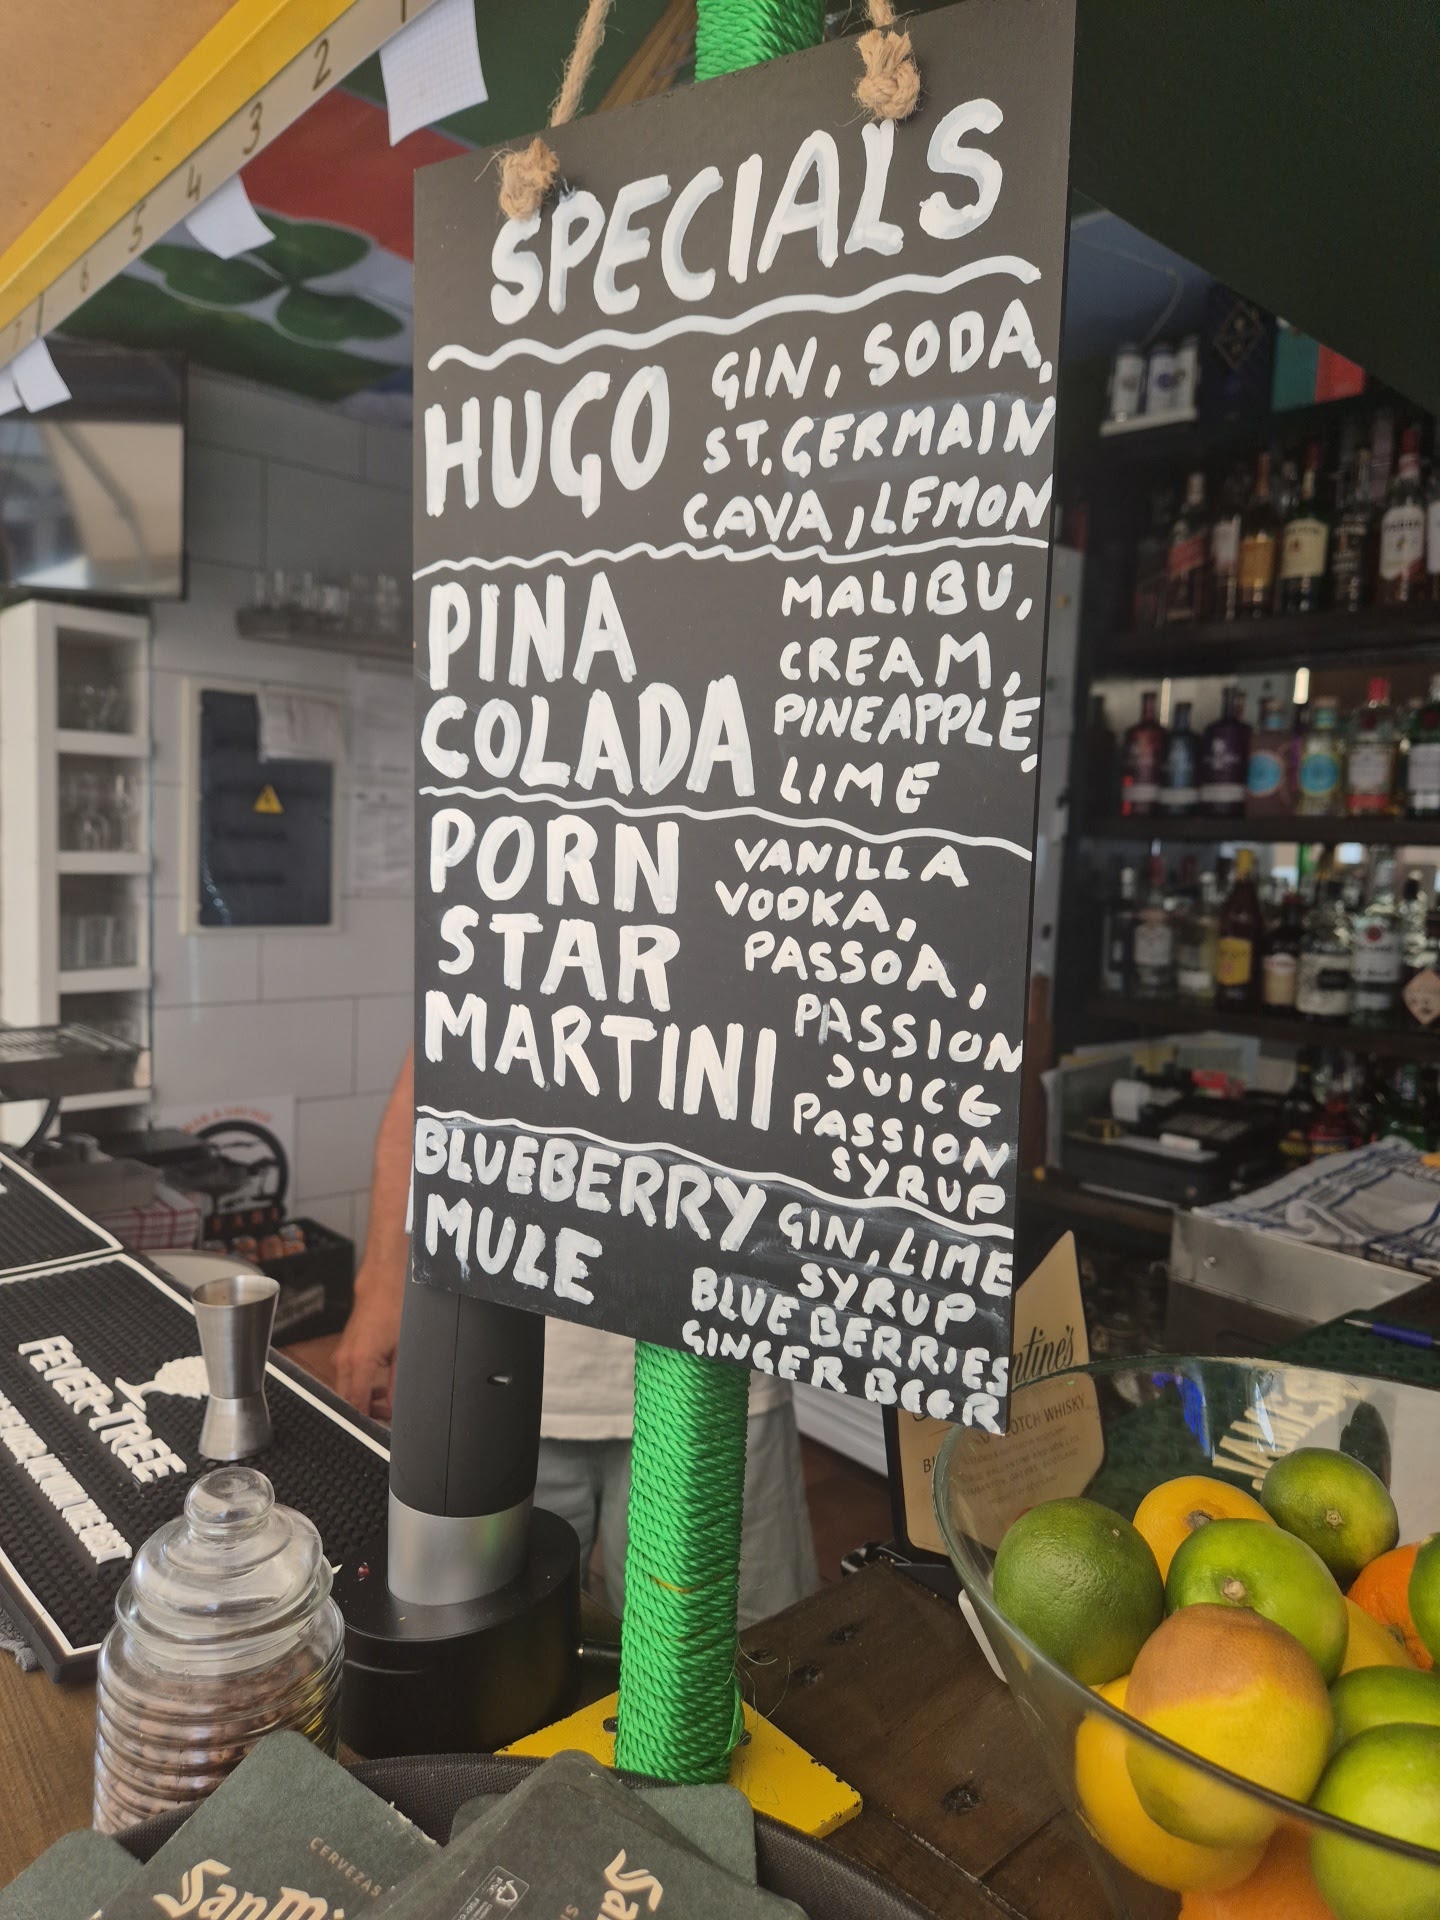 1
2
3
4
5
6
7
SPECIALS
HUGO
GIN, SODA,
ST. GERMAIN
CAVA, LEMON
PINA
COLADA
MALIBU,
CREAM,
PINEAPPLE,
LIME
PORN
STAR
MARTINI
VANILLA
VODKA,
PASSOA,
PASSION
JUICE
PASSION
SYRUP
BLUEBERRY
MULE
GIN, LIME
SYRUP
BLUE BERRIES
GINGER BEER
FEVER-TREE
ntine's
SCOTCH WHISKY
JAMES
CERVEZAS
San Mi
Sa